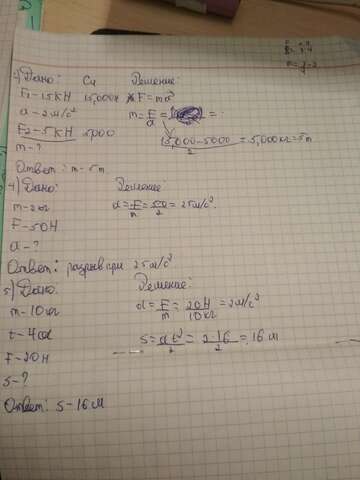 3) Дано: Си Решение:
F1-15кН 15,000Н F=ma
a-2м/с² m=F/a=
F2-5кН 5000 15,000-5000/2=5,000кг=5т
m-?
Ответ: m-5т
4) Дано: Решение:
m-2кг a=F/m=50/2=25м/с².
F-50Н
a-?
Ответ: разрыв при 25м/с²
5) Дано: Решение:
m-10кг a=F/m=20Н/10кг=2м/с²
t-4сек
F-20Н S=at²/2=2·16/2=16м
s-?
Ответ: S-16м